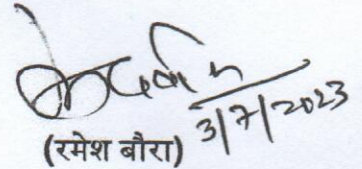 3/7/2023
(रमेश बौरा)